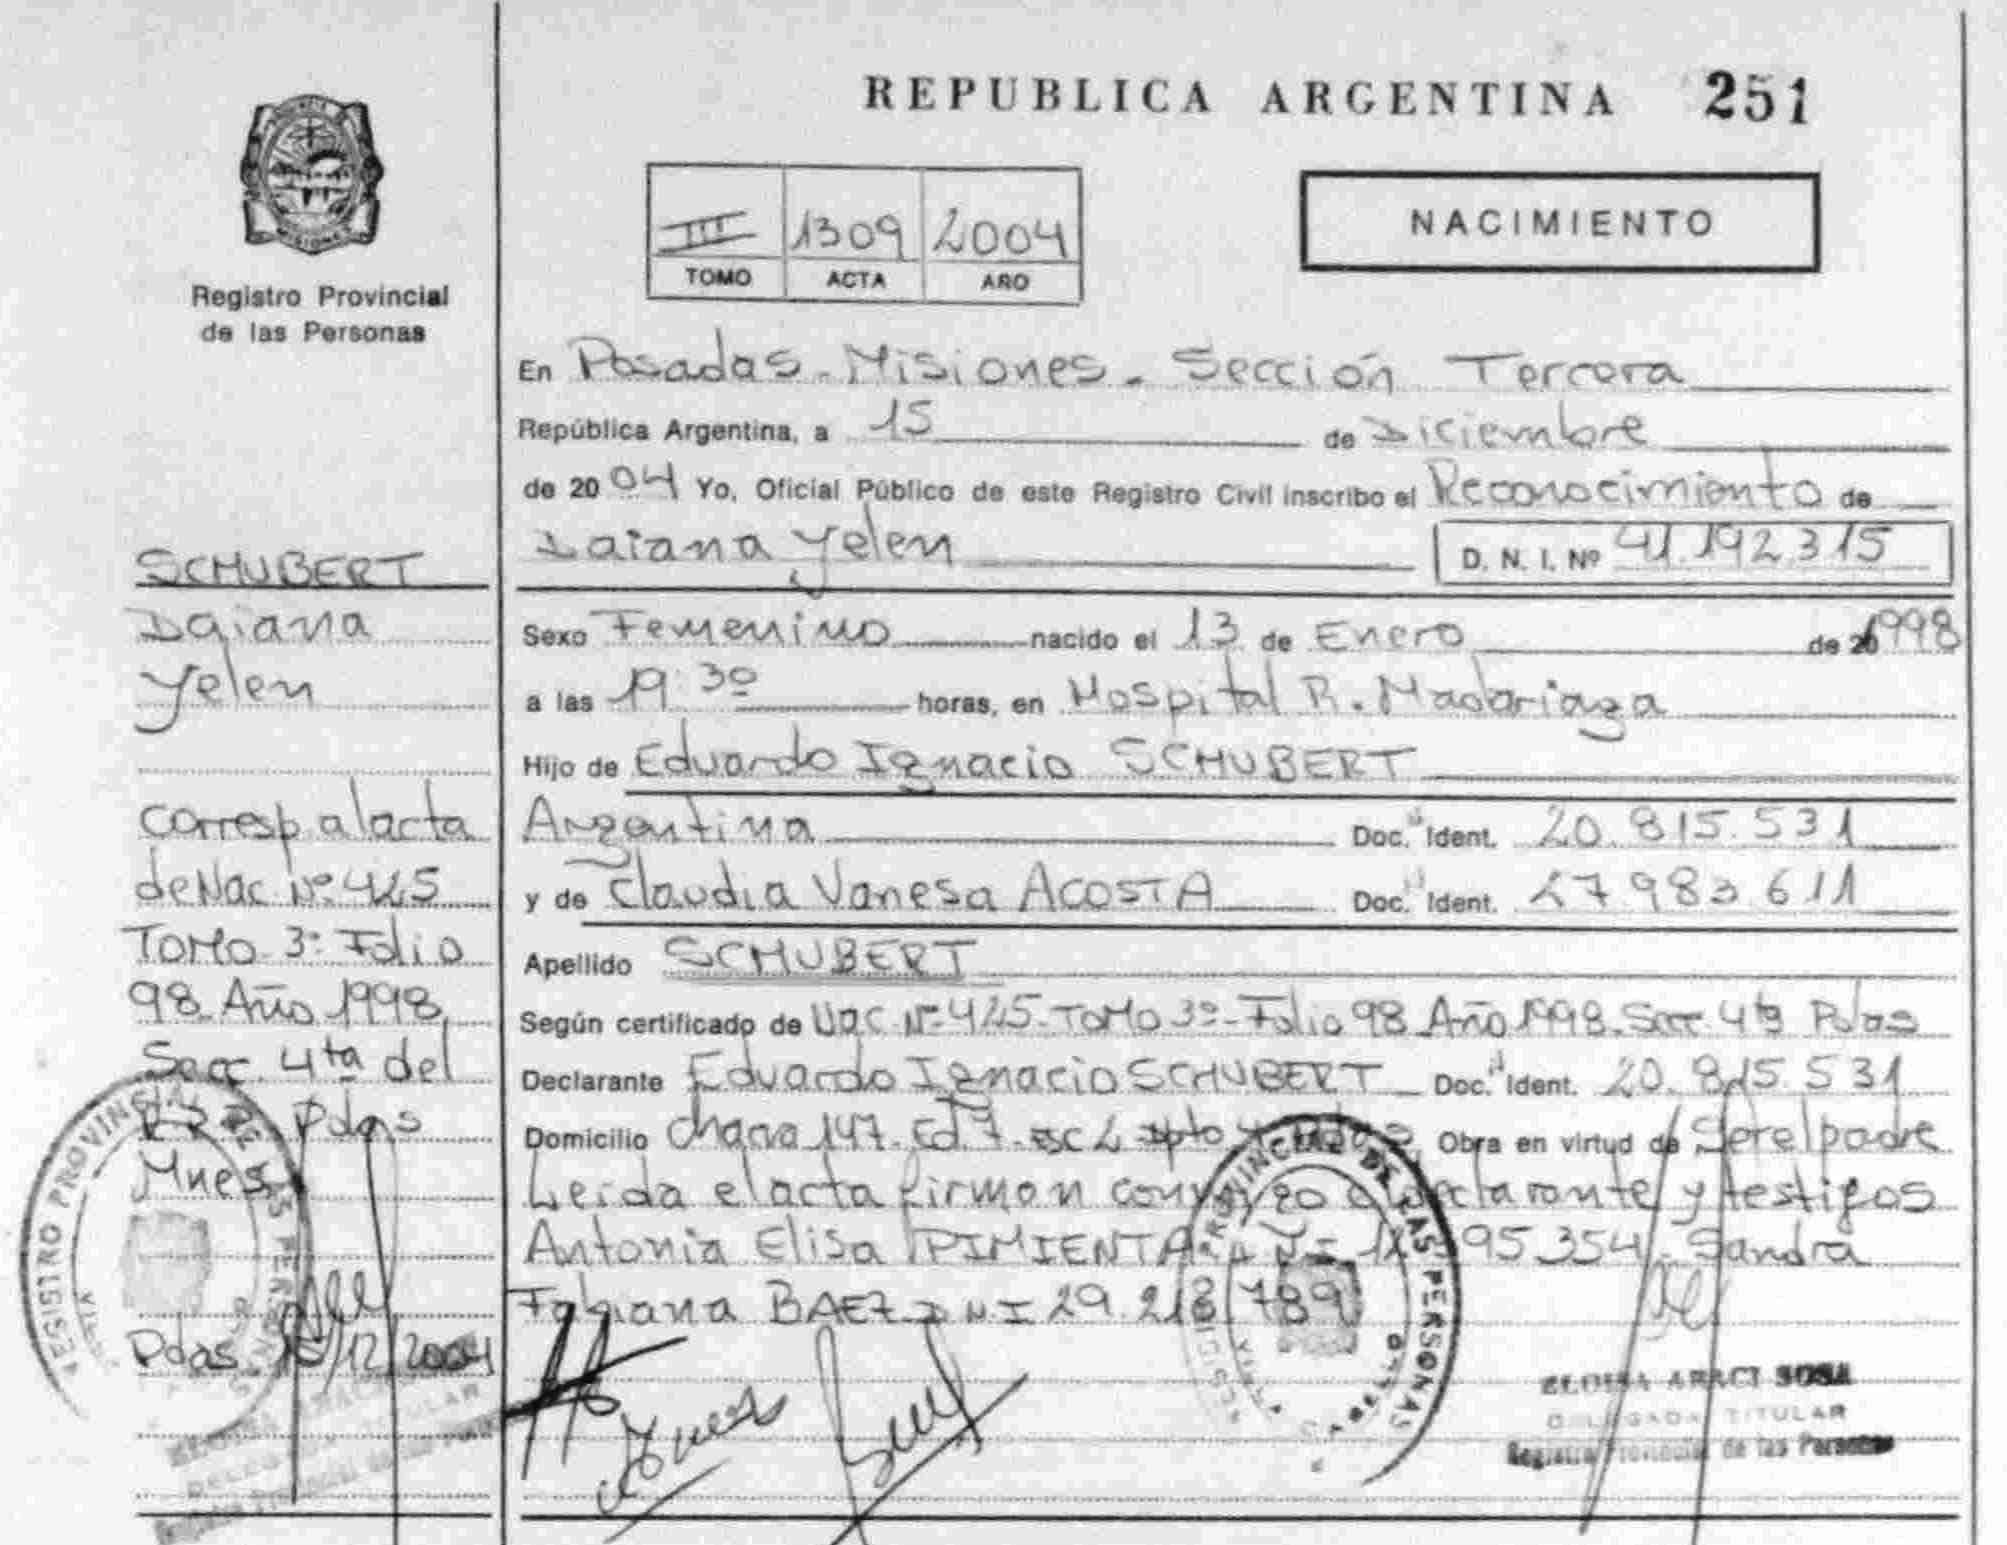 REPUBLICA ARGENTINA 251
NACIMIENTO
III 1309 2004
TOMO ACTA AÑO
Registro Provincial
de las Personas
En Posadas - Misiones - Sección Tercera
República Argentina, a 15 de Diciembre
de 2004 Yo, Oficial Público de este Registro Civil inscribo el Reconocimiento de
Daiana Yelen D. N. I. Nº 41.192.315
Sexo Femenino nacido el 13 de Enero de 1998
a las 19:30 horas, en Hospital R. Madariaga
Hijo de Eduardo Ignacio SCHUBERT
Argentina Doc. Ident. 20.815.531
y de Claudia Vanesa ACOSTA Doc. Ident. 27.983.611
Apellido SCHUBERT
Según certificado de Nac. Nº 425 - Tomo 3º - Folio 98 Año 1998. Secc. 4ta Pdas
Declarante Eduardo Ignacio SCHUBERT Doc. Ident. 20.815.531
Domicilio Chacra 147. Ed. 7. esc 2 dpto Obra en virtud de Ser el padre
Leida el acta firman conmigo el declarante y testigos
Antonia Elisa PIMIENTA 95.354 - Sandra
Fabiana BAEZ D N I 29.218.789
SCHUBERT
Daiana
Yelen
corresp. al acta
de Nac. Nº 425
Tomo 3º Folio
98 Año 1998
Secc. 4ta del
Pdas
Mnes
Pdas 15/12/2004
REGISTRO PROVINCIAL DE LAS PERSONAS
PROVINCIAL DE LAS PERSONAS
ELOISA ARACI SOSA
DELEGADA TITULAR
Registro Provincial de las Personas